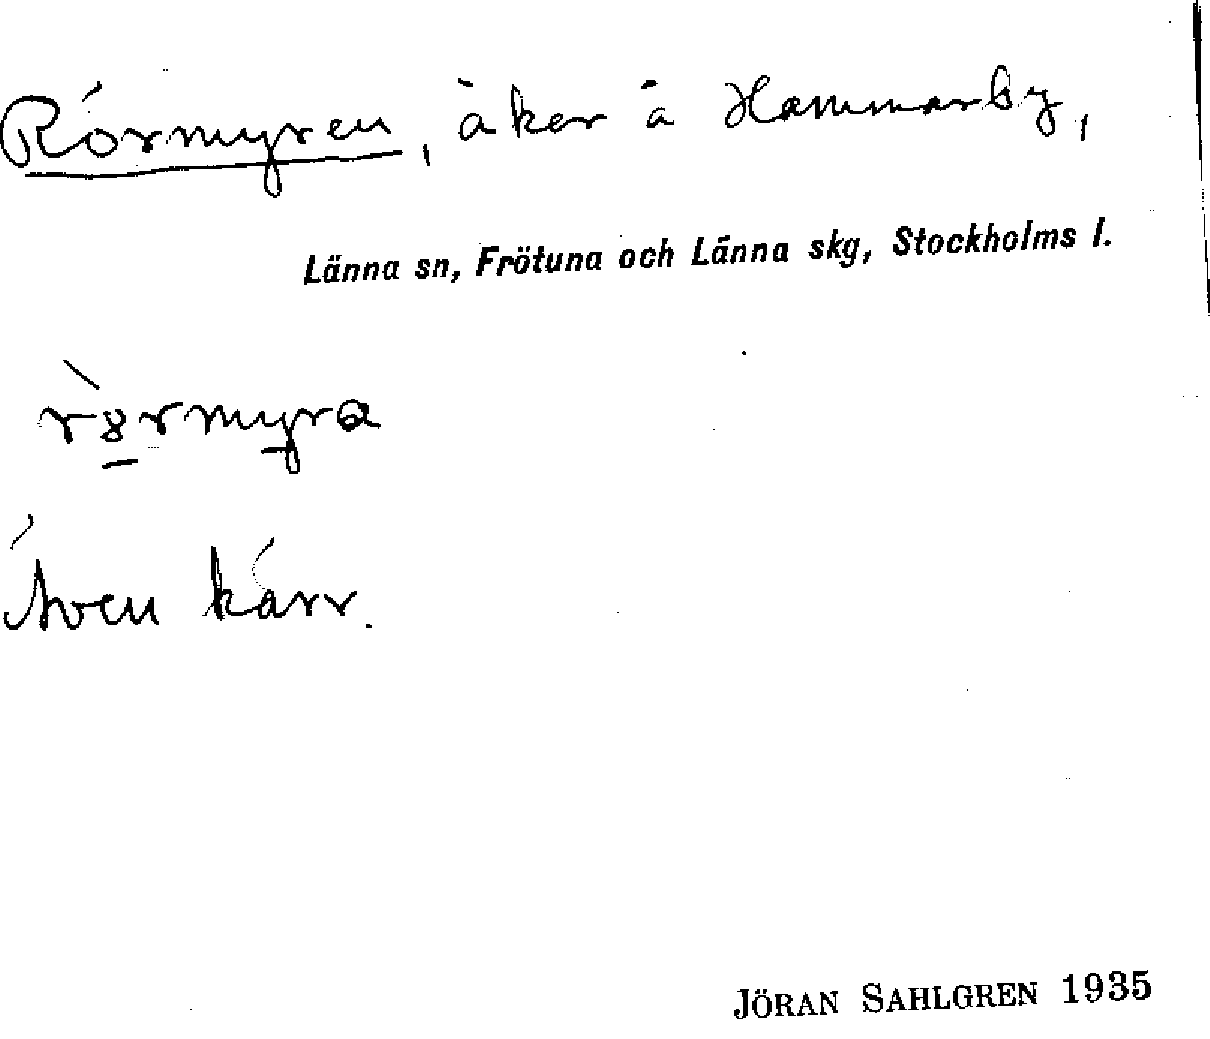 Rörmyren, åker å Hammarby,
Länna sn, Frötuna och Länna skg, Stockholms l.
r8̀rmyra
Även kärr.
JÖRAN SAHLGREN 1935